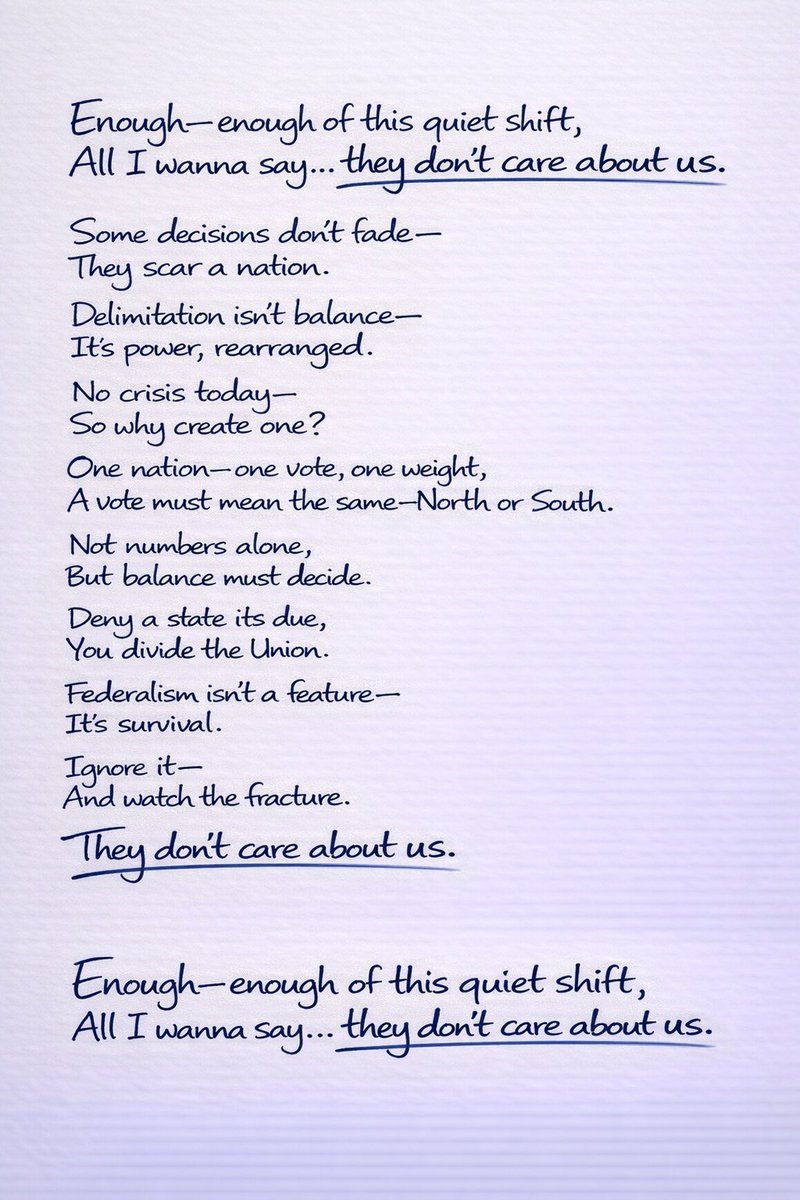 Enough—enough of this quiet shift,
All I wanna say... they don't care about us.
Some decisions don't fade—
They scar a nation.
Delimitation isn't balance—
It's power, rearranged.
No crisis today—
So why create one?
One nation—one vote, one weight,
A vote must mean the same—North or South.
Not numbers alone,
But balance must decide.
Deny a state its due,
You divide the Union.
Federalism isn't a feature—
It's survival.
Ignore it—
And watch the fracture.
They don't care about us.
Enough—enough of this quiet shift,
All I wanna say... they don't care about us.